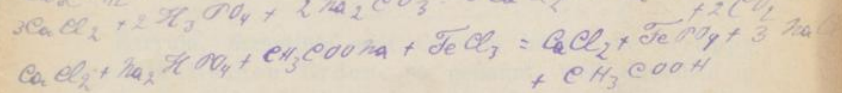 3CaCl2 + 2 H3PO4 + 2 Na2CO3
+ 2CO2
CaCl2 + Na2HPO4 + CH3COONa + FeCl3 = CaCl2 + FePO4 + 3 NaCl
+ CH3COOH